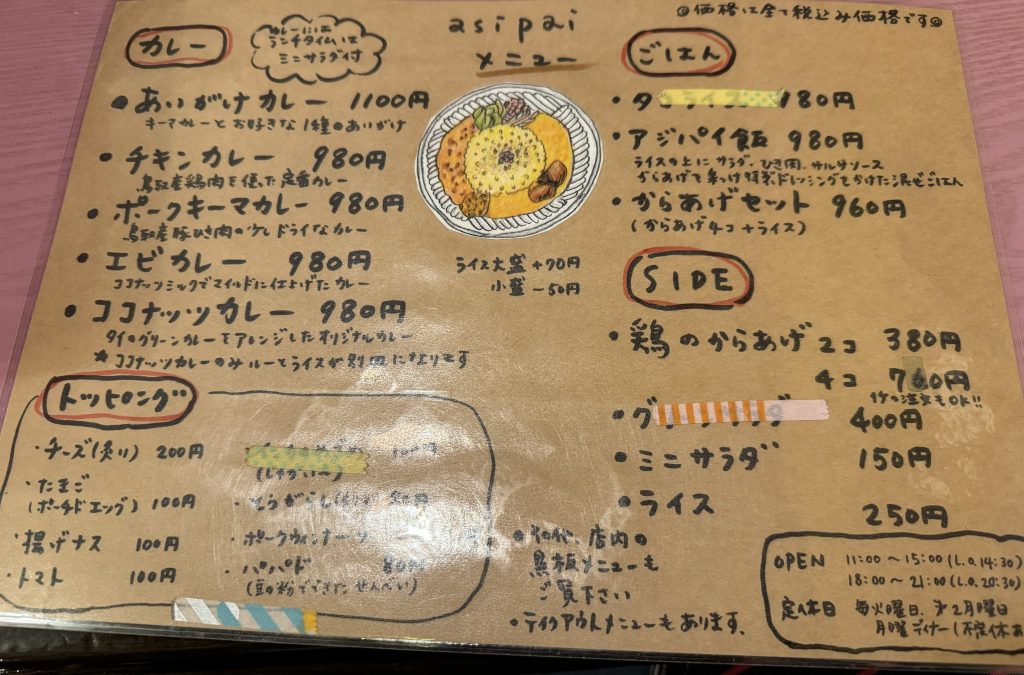 asipai
メニュー
◎価格は全て税込み価格です◎
カレー
カレーには
ランチタイムは
ミニサラダ付
・あいがけカレー 1100円
キーマカレーとお好きな1種のあいがけ
・チキンカレー 980円
鳥取産鶏肉を使った定番カレー
・ポークキーマカレー 980円
鳥取産豚ひき肉の少しドライなカレー
・エビカレー 980円
ココナッツミルクでマイルドに仕上げたカレー
・ココナッツカレー 980円
タイのグリーンカレーをアレンジしたオリジナルカレー
☆ココナッツカレーのみルーとライスが別皿になります
ライス大盛+70円
小盛-50円
トッピング
・チーズ(炙り) 200円
・たまご
(ポーチドエッグ) 100円
・揚げナス 100円
・トマト 100円
・とうがらし
・ポークウィンナー
・パパド 80円
(豆の粉でできたせんべい)
ごはん
・タコライス
・アジパイ飯 980円
ライスの上にサラダ、ひき肉、サルサソース
からあげを乗っけ特製ドレッシングをかけた混ぜごはん
・からあげセット 960円
(からあげ4コ+ライス)
SIDE
・鶏のからあげ 2コ 380円
4コ 760円
1ケの注文もOK!!
・グ 400円
・ミニサラダ 150円
・ライス 250円
・その他、店内の
黒板メニューも
ご覧下さい
・テイクアウトメニューもあります。
OPEN 11:00～15:00(L.O.14:30)
18:00～21:00(L.O.20:30)
定休日 毎火曜日、第2月曜日
月曜ディナー(不定休あ